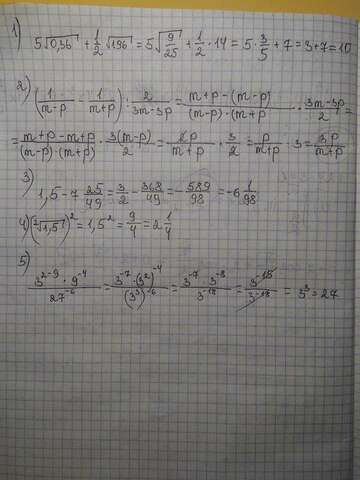 1) 5√0,36 + 1/2 √196 = 5√9/25 + 1/2 · 14 = 5 · 3/5 + 7 = 3 + 7 = 10
2) (1/(m-p) - 1/(m+p)) : 2/(3m-3p) = (m+p-(m-p))/((m-p)·(m+p)) · (3m-3p)/2 =
= (m+p-m+p)/((m-p)·(m+p)) · 3(m-p)/2 = 2p/(m+p) · 3/2 = p/(m+p) · 3 = 3p/(m+p)
3) 1,5 - 7 25/49 = 3/2 - 368/49 = - 589/98 = -6 1/98
4) (²√1,5)² = 1,5² = 9/4 = 2 1/4
5) (3^(2-9) · 9^(-4))/27^(-6) = (3^(-7) · (3²)^(-4))/(3³)^(-6) = (3^(-7) · 3^(-8))/3^(-18) = 3^(-15)/3^(-18) = 3³ = 27